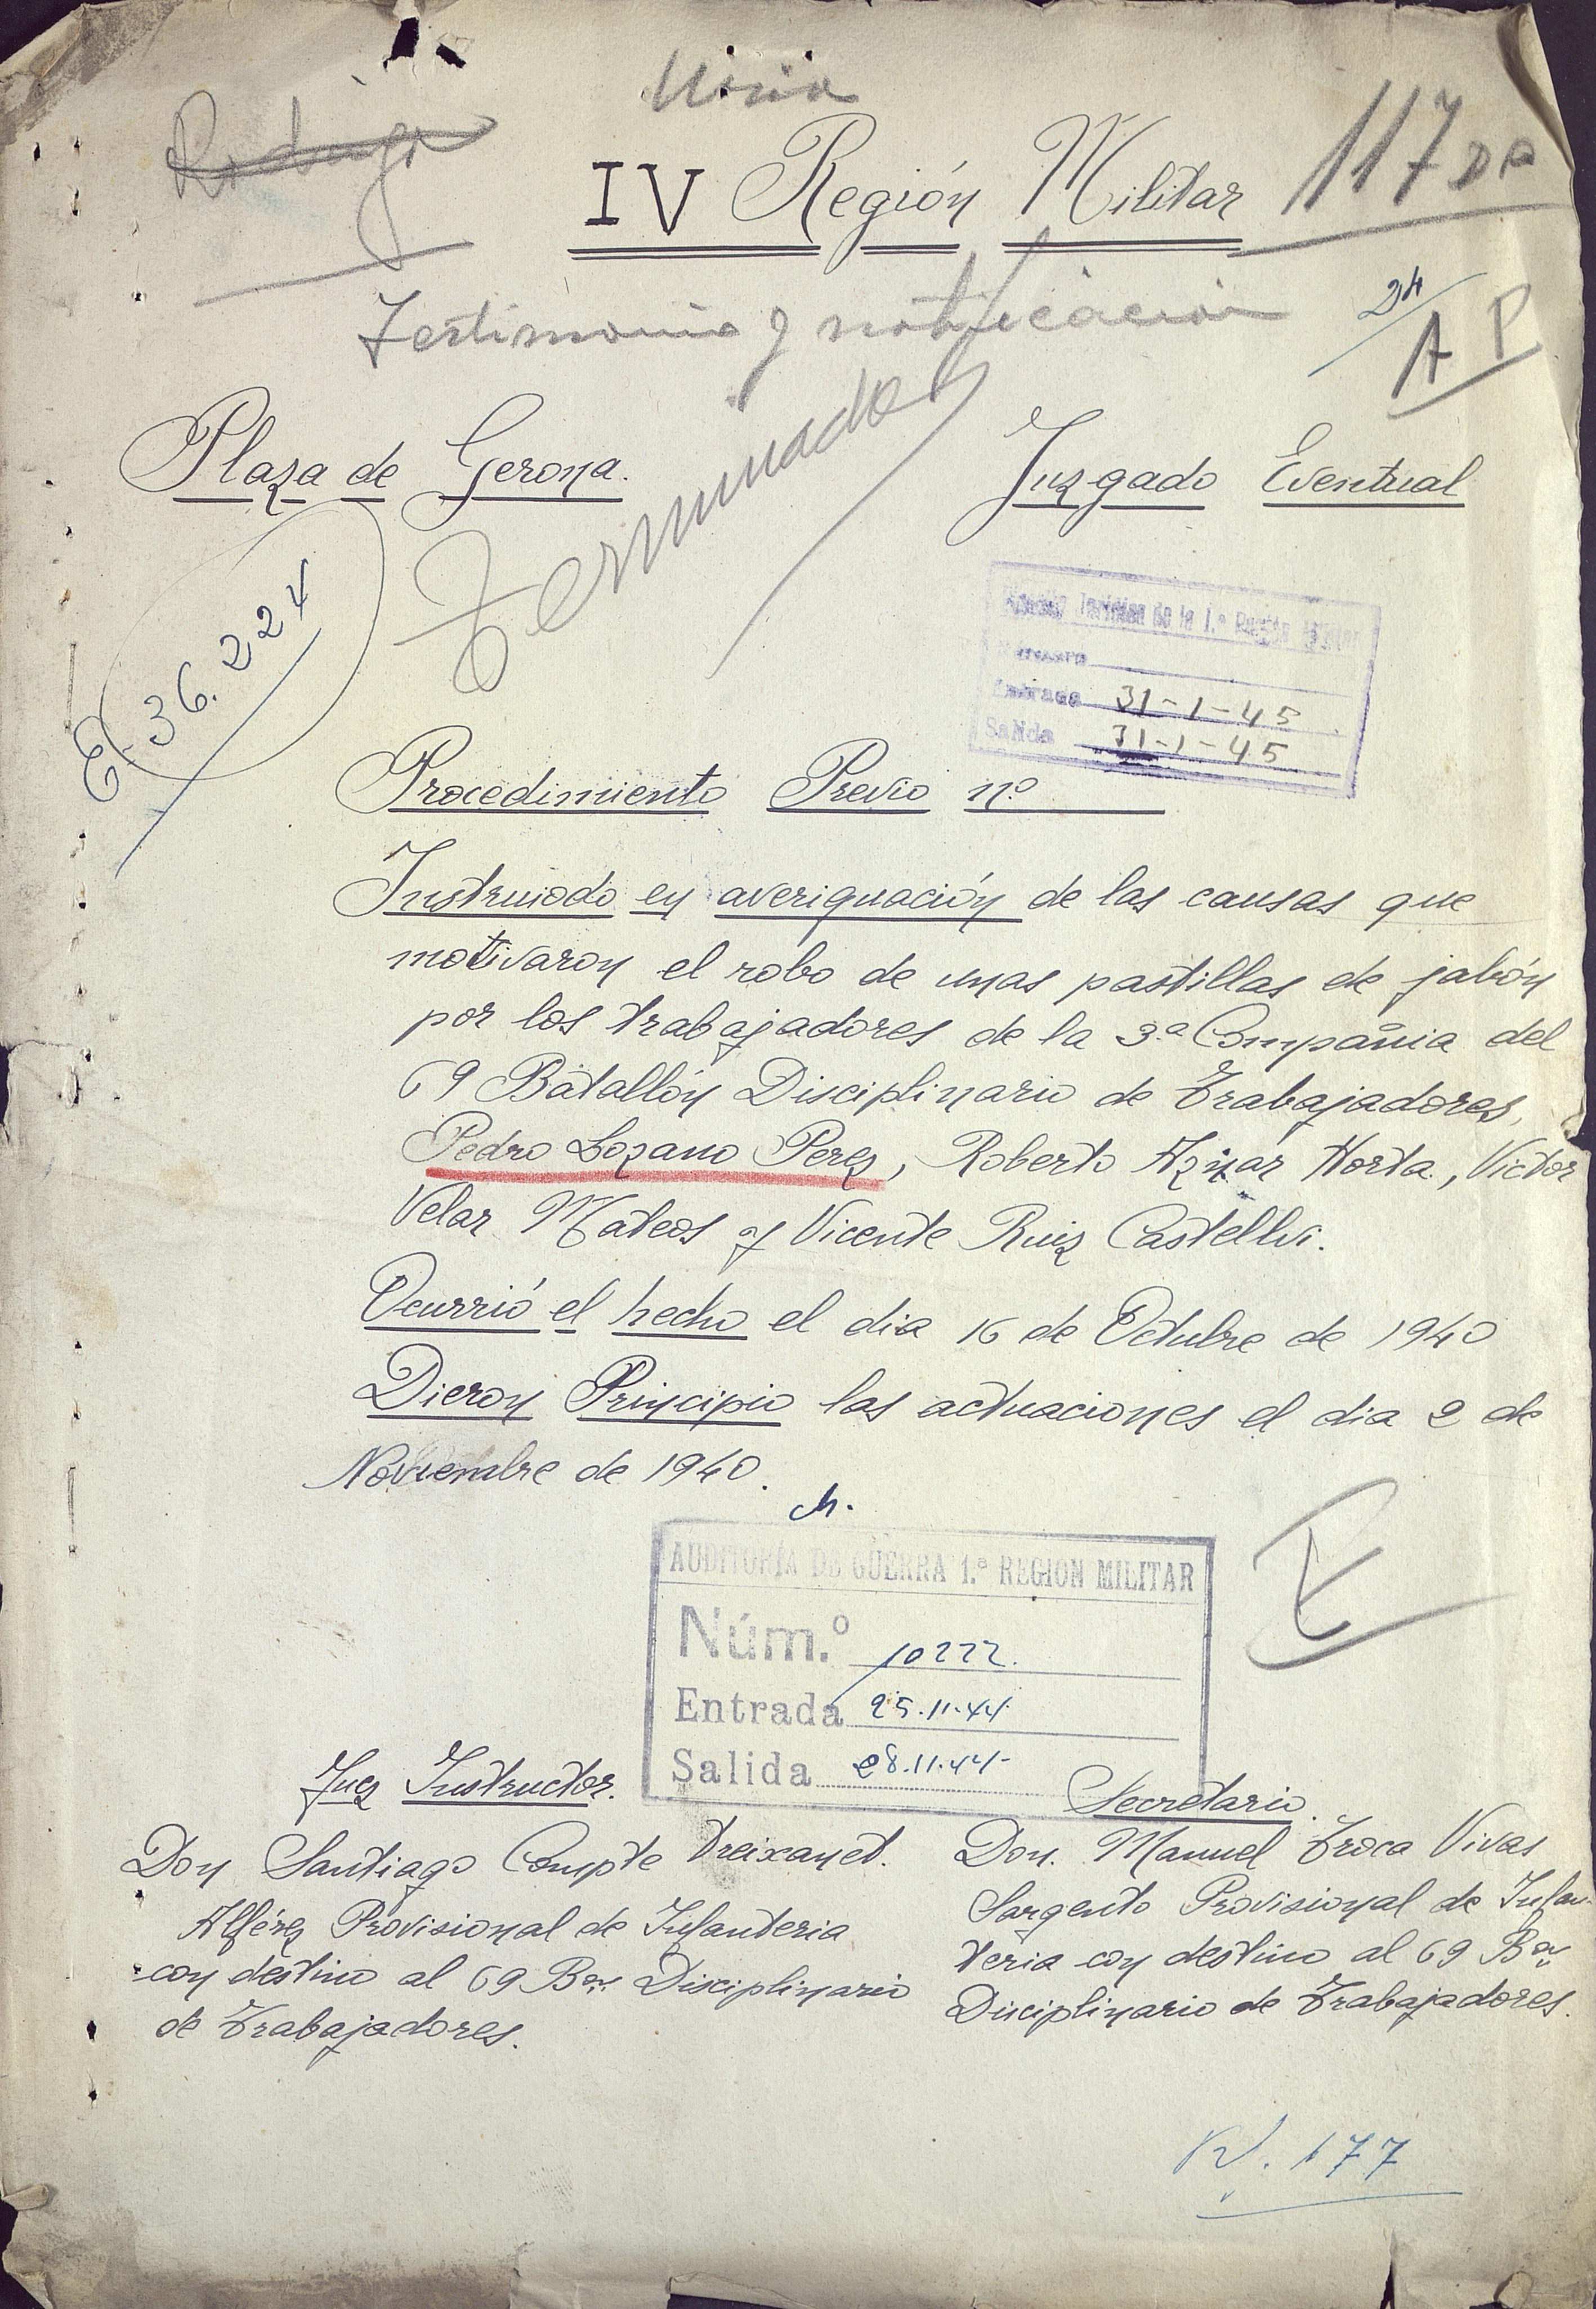 117
IV Región Militar
Testimonio y notificacion
24
A P
Plaza de Gerona.
Juzgado Eventual
Terminado
E. 36.224
Entrada 31-1-45
Salida 31-1-45
Procedimiento Previo nº
Instruiodo en averiguación de las causas que
motivaron el robo de unas pastillas de jabón
por los trabajadores de la 3.ª Compañia del
69 Batallón Disciplinario de Trabajadores,
Pedro Lozano Perez, Roberto Aznar Horta, Victor
Velar Mateos y Vicente Ruiz Castellvi.
Ocurrió el hecho el dia 16 de Octubre de 1940
Dieron Principio las actuaciones el dia 2 de
Noviembre de 1940.
AUDITORÍA DE GUERRA 1.ª REGION MILITAR
Núm.º 10222.
Entrada 25.11.44
Salida 28.11.44
Juez Instructor.
Secretario.
Don Santiago Compte Freixanet.
Don. Manuel Troca Vivas
Alférez Provisional de Infanteria
Sargento Provisional de Infan-
con destino al 69 Bon Disciplinario
teria con destino al 69 Bon
de Trabajadores.
Disciplinario de Trabajadores.
177